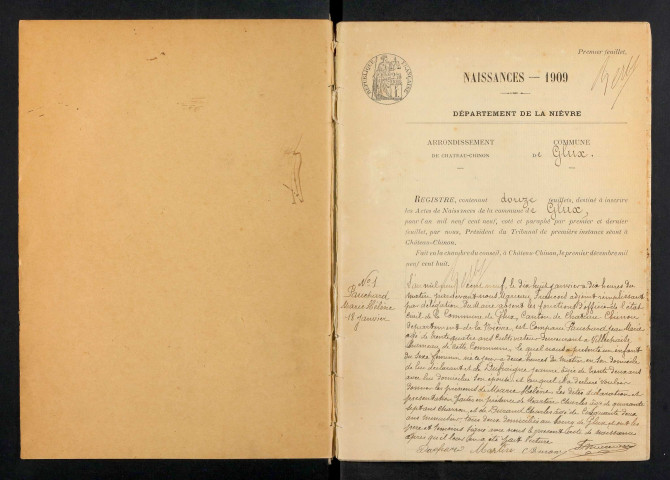 Premier feuillet.
RÉPUBLIQUE FRANÇAISE
NAISSANCES — 1909
DÉPARTEMENT DE LA NIÈVRE
ARRONDISSEMENT
DE CHATEAU-CHINON
COMMUNE
DE Glux.
REGISTRE, contenant douze feuillets, destiné à inscrire
les Actes de Naissances de la commune de Glux,
pour l'an mil neuf cent neuf, coté et paraphé par premier et dernier
feuillet, par nous, Président du Tribunal de première instance séant à
Château-Chinon.
Fait en la chambre du conseil, à Château-Chinon, le premier décembre mil
neuf cent huit.
N° 1
Marie Hélène
18 janvier
L'an mil neuf cent neuf, le dix huit janvier à dix heures du
matin, par devant nous François adjoint remplissant
par délégation du Maire absent les fonctions d'officier de l'état
civil de la Commune de Glux, Canton de Château Chinon
département de la Nièvre, est comparu Jean Marie
âgé de trente quatre ans Cultivateur demeurant à
de cette Commune, lequel nous a présenté un enfant
du sexe féminin né ce jour à deux heures du matin en son domicile
de lui déclarant et de Jeanne âgée de trente deux ans
avec lui domiciliée son épouse, et auquel il a déclaré vouloir
donner les prénoms de Marie Hélène. Les dites déclaration et
présentation faites en présence de Charles âgé de quarante
sept ans et de Charles âgé de cinquante deux
ans tous deux domiciliés au bourg de Glux et ont les
père et témoins signé avec nous le présent acte de naissance
après que lecture leur a été fait
Martin